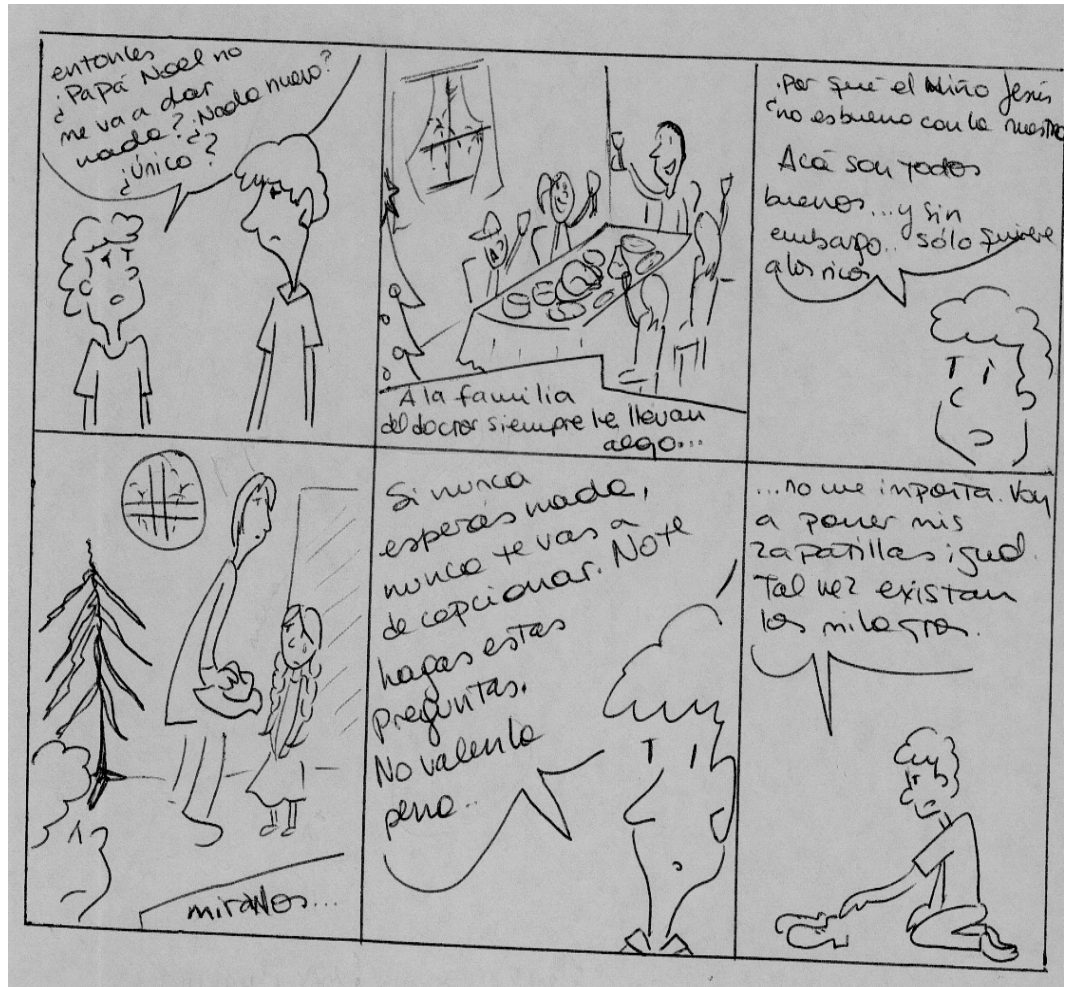 entonces
¿Papá Noel no
me va a dar
nada? ¿Nada nuevo?
¿Único?
A la familia
del doctor siempre le llevan
algo...
¿Por qué el Niño Jesús
no es bueno con la nuestra
Acá son todos
buenos... y sin
embargo.. sólo quiere
a los ricos
miralos...
Si nunca
esperás nada,
nunca te vas a
decepcionar. No te
hagas estas
preguntas.
No valen la
pena..
...no me importa. Voy
a poner mis
zapatillas igual.
Tal vez existan
los milagros.